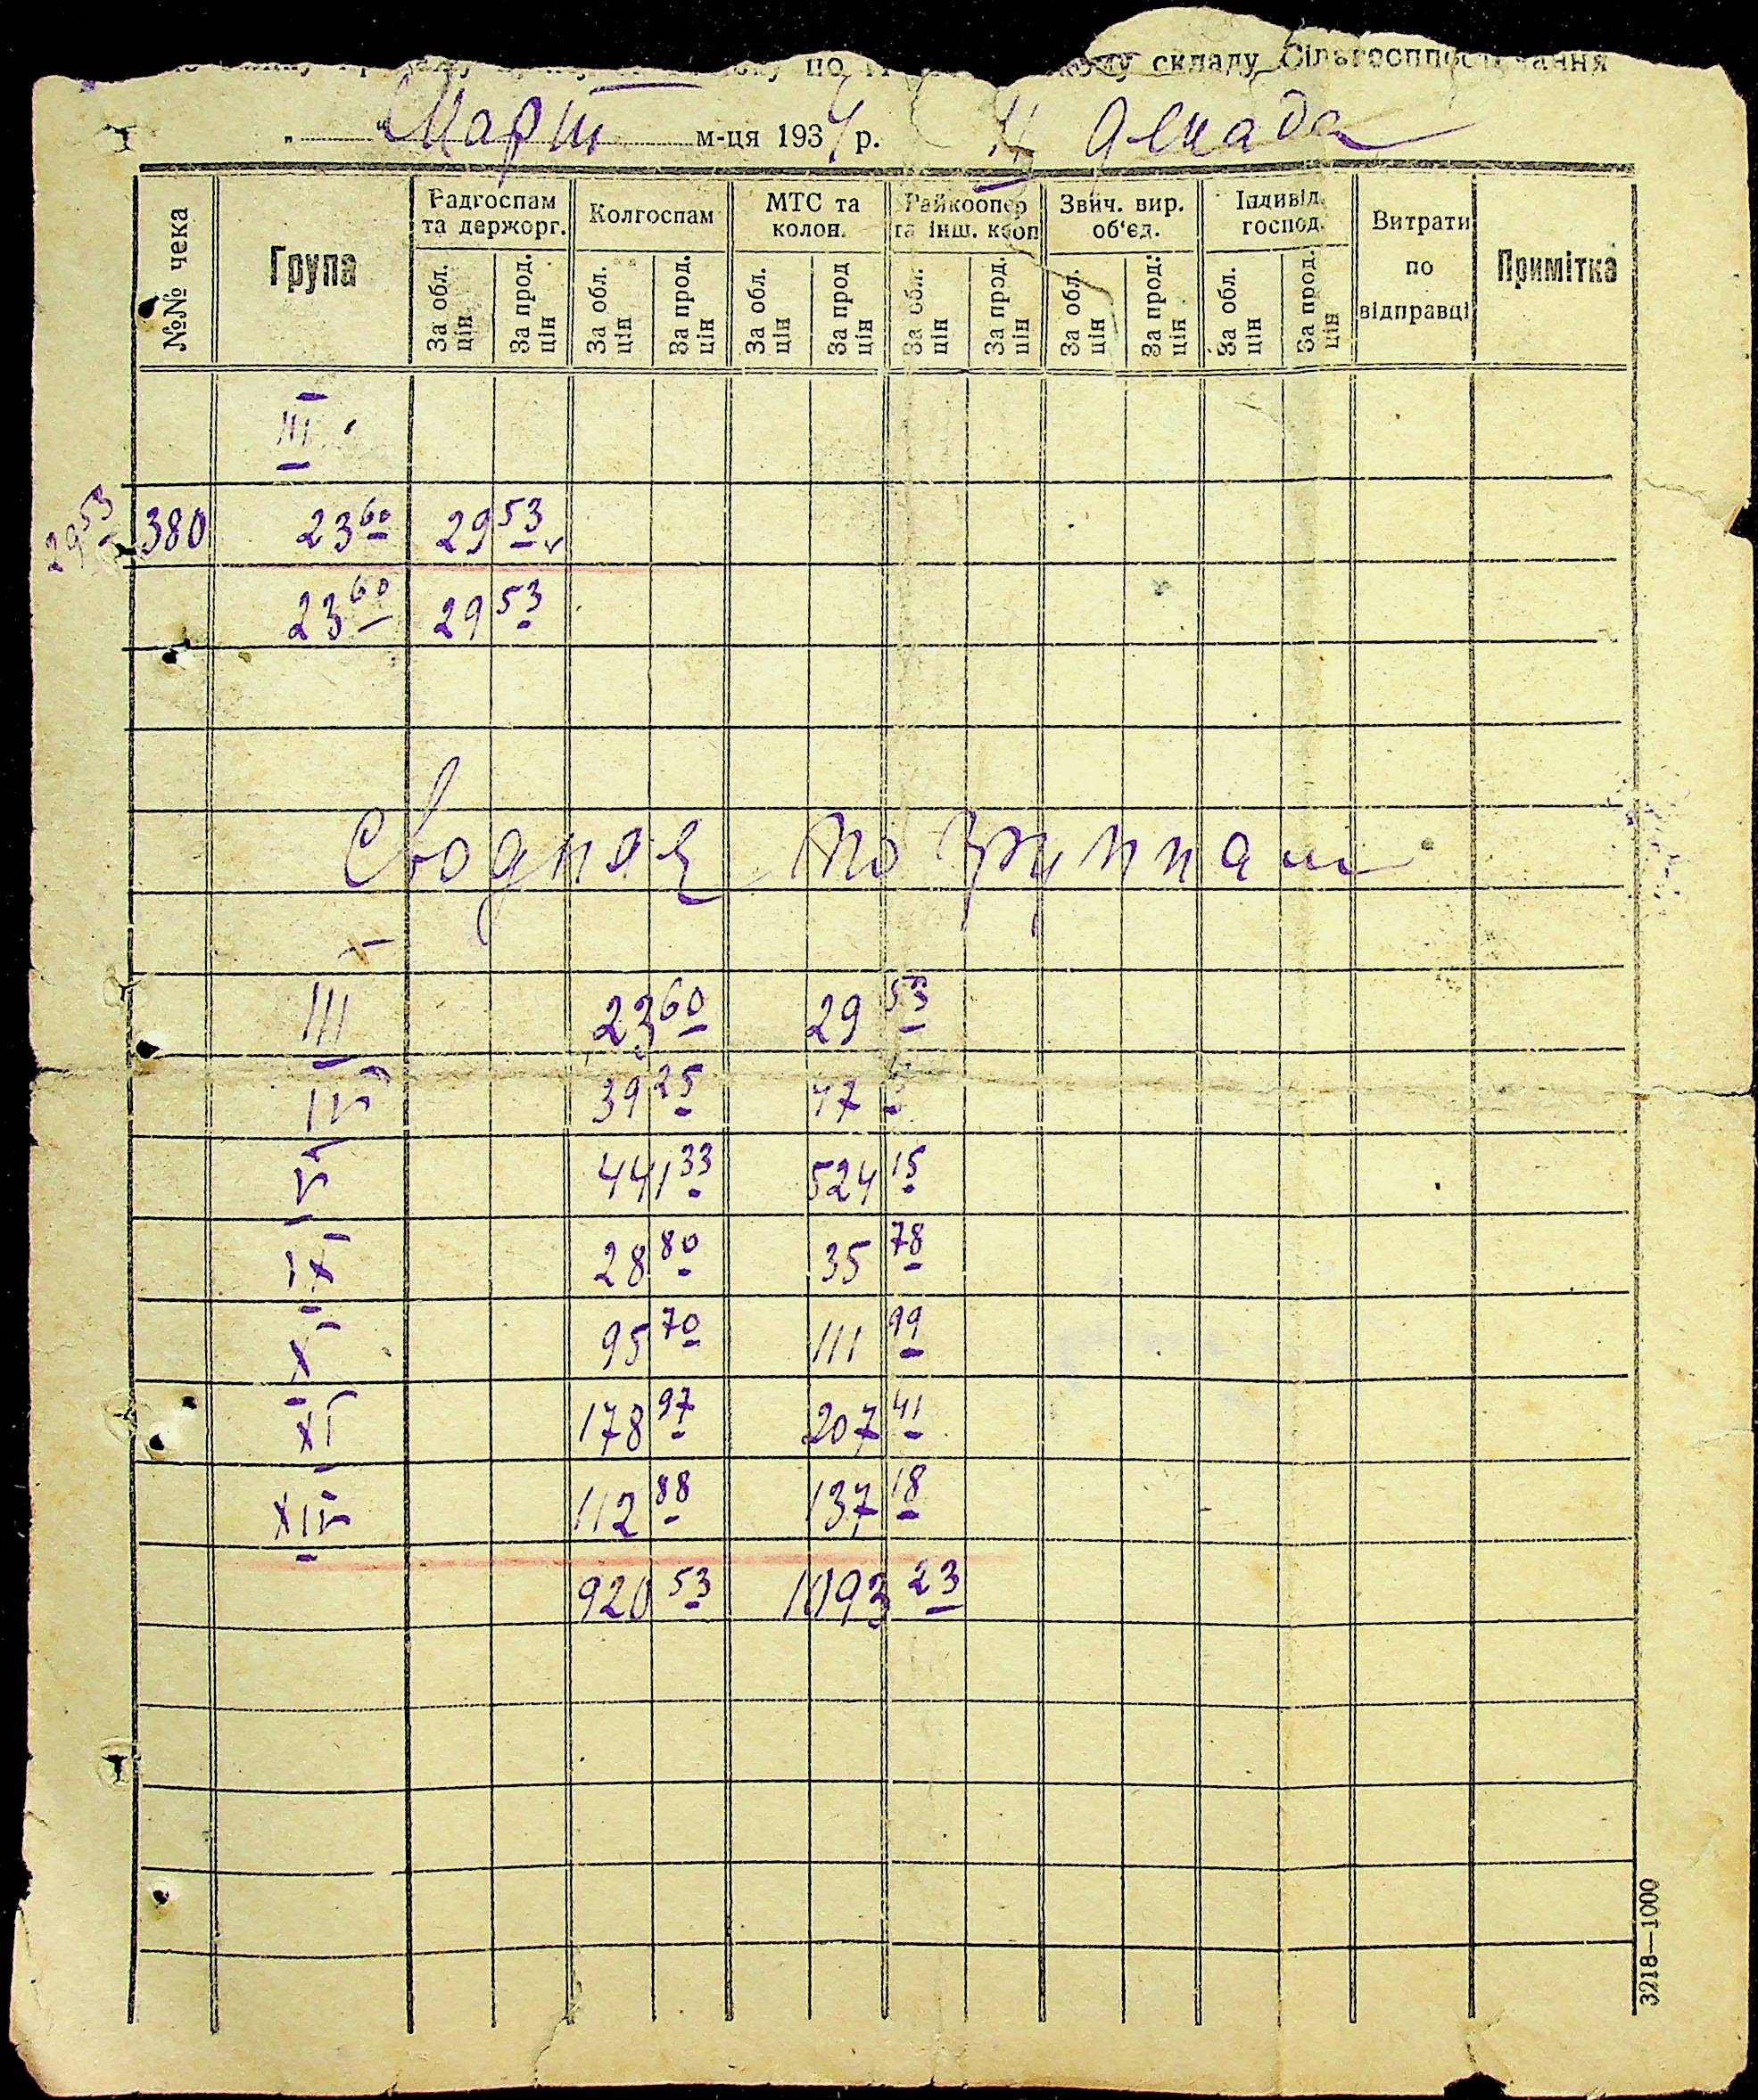 складу Сільгосппостачання
„ Март м-ця 1934 р. II декада
№№ чека
Група
Радгоспам та держорг.
Колгоспам
МТС та колон.
Райкоопер та інш. кооп
Звич. вир. об'єд.
Індивід. господ.
Витрати по відправці
Примітка
За обл. цін
За прод. цін
За обл. цін
За прод. цін
За обл. цін
За прод цін
За обл. цін
За прод. цін
За обл. цін
За прод. цін
За обл. цін
За прод. цін
III
29 53 380 23 60 29 53
23 60 29 53
Сводная по группам
III 23 60 29 53
IV 39 25 47
V 441 33 524 15
IX 28 80 35 78
X 95 70 111 99
XI 178 97 207 41
XIV 112 88 137 18
920 53 1093 23
3218—1000